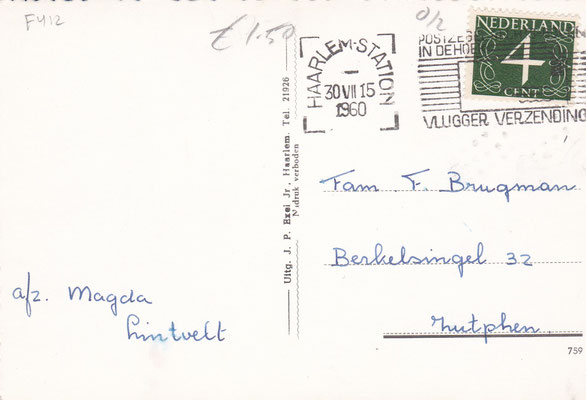 F412
€ 1.50
0/2
HAARLEM-STATION
30 VII 15
1960
POSTZE
IN DE HOE
VLUGGER VERZENDING
NEDERLAND
4
CENT
Uitg. J. P. Exel Jr., Haarlem. Tel. 21926
Nadruk verboden
Fam F. Brugman
Berkelsingel 32
Zutphen.
a/z. Magda
Lintvelt
759